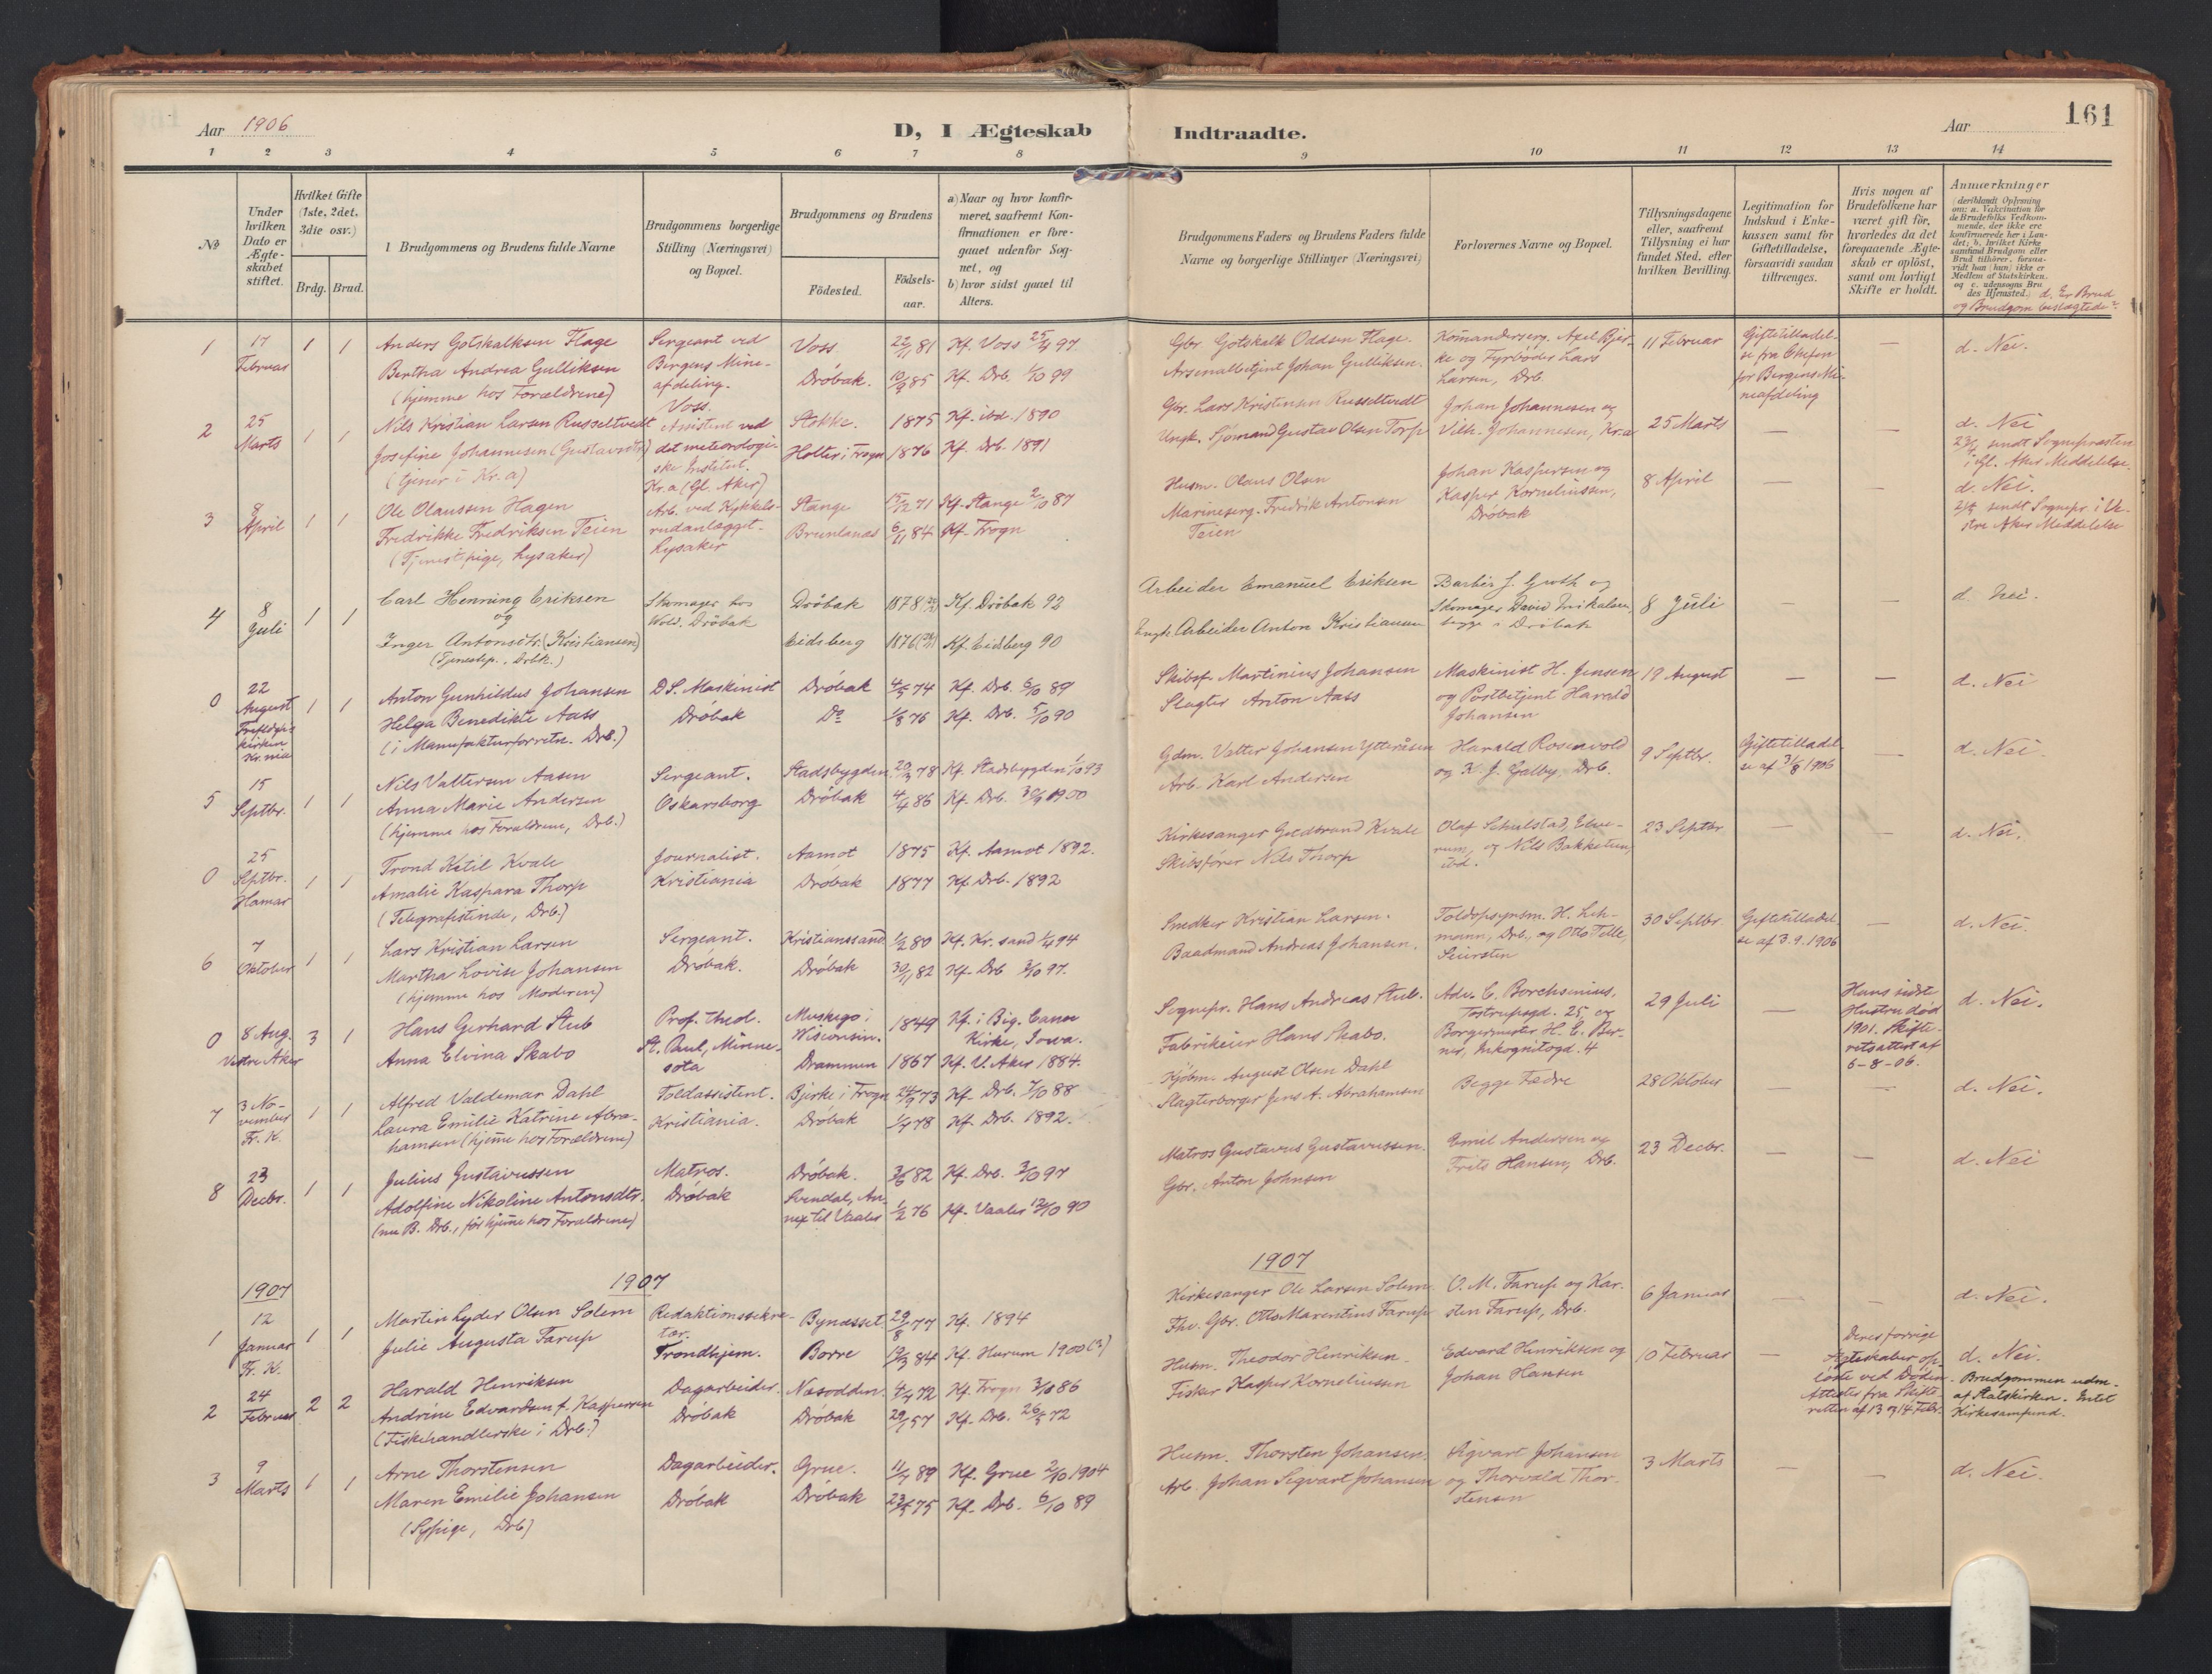 Aar 1906
D, I Ægteskab
Indtraadte.
Aar
161
1 2 3 4 5 6 7 8 9 10 11 12 13 14
No
Under hvilken Dato er Ægteskabet stiftet.
Hvilket Gifte (1ste, 2det, 3die osv.)
Brdg. Brud.
1 Brudgommens og Brudens fulde Navne
Brudgommens borgerlige Stilling (Næringsvei) og Bopæl.
Brudgommens og Brudens
Födested.
Födsels-aar.
a) Naar og hvor konfir-
meret, saafremt Kon-
firmationen er fore-
gaaet udenfor Sog-
net, og
b) hvor sidst gaaet til
Alters.
Brudgommens Faders og Brudens Faders fulde
Navne og borgerlige Stillinger (Næringsvei)
Forlovernes Navne og Bopæl.
Tillysningsdagene
eller, saafremt
Tillysning ei har
fundet Sted, efter
hvilken Bevilling.
Legitimation for
Indskud i Enke-
kassen samt for
Giftetilladelse,
forsaavidt saadan
tiltrænges.
Hvis nogen af
Brudefolkene har
været gift för,
hvorledes da det
foregaaende Ægte-
skab er oplöst,
samt om lovligt
Skifte er holdt.
Anmærkninger
(deriblandt Oplysning
om: a. Vakcination for
de Brudefolks Vedkom-
mende, der ikke ere
konfirmerede her i Lan-
det; b. hvilket Kirke-
samfund Brudgom eller
Brud tilhörer, forsaa-
vidt han (hun) ikke er
Medlem af Statskirken,
og c. udensogns Bru-
des Hjemsted.) d. Er Brud
og Brudgom beslægtede?
1 17 Februar 1 1
Anders Gotskalksen Flage
Bertha Andrea Gulliksen
(hjemme hos Forældrene)
Sergeant ved
Bergens Mine-
afdeling.
Voss.
Voss 22/11 81 Kf. Voss 25/4 97
Dröbak. 10/9 85 Kf. Drb. 1/10 99
Gbr. Gotskalk Oddsen Flage.
Arsenalbetjent Johan Gulliksen.
Komandersersg. Axel Bjer-
ke og Fyrböder Lars
Larsen, Drb.
11 Februar
Giftetilladel-
se fra Chefen
for Bergens Mi-
neafdeling
—
d. Nei.
2 25 Marts 1 1
Nils Kristian Larsen Russeltvedt
Josefine Johannesen (Gustavsdtr.)
(tjener i Kr.a)
Assistent ved
det meteorologi-
ske Institut.
Kr.a (Gl. Aker)
Stokke. 1875 Kf. ibd. 1890
Holter i Frogn 1876 Kf. Drb. 1891
Gbr. Lars Kristensen Russeltvedt
Ungk. Sjömand Gustav Olsen Torp
Johan Johannesen og
Vilh. Johannesen, Kr.a
25 Marts
— —
d. Nei
sendt Sognepræsten
i Gl. Aker Meddelelse.
3 8 April 1 1
Ole Olaussen Hagen
Fredrikke Fredriksen Teien
(Tjenestpige, Lysaker)
Arb. ved Kykkels-
rudanlægget.
Lysaker
Stange 15/12 71 Kf. Stange 2/10 87
Brunlanæs 6/11 84 Kf. Frogn
Husm. Olaus Olsen
Marineserg. Fredrik Antonsen
Teien
Johan Kaspersen og
Kasper Korneliussen,
Dröbak
8 April
— —
d. Nei.
sendt Sognepr. i Ve-
stre Aker Meddelelse
4 8 Juli 1 1
Carl Henning Eriksen
og
Inger Antonsdtr. (Kristiansen)
(Tjenestep., Drbk.)
Skomager hos
Wold. Dröbak
Dröbak 1878 Kf. Dröbak 92
Eidsberg 1876 Kf. Eidsberg 90
Arbeider Emanuel Eriksen
Ungk. Arbeider Anton Kristiansen
Barbér J. Groth og
Skomager David Mikalsen,
begge i Dröbak
8 Juli
— —
d. Nei.
0 22 August
Kirken
Kr.nia
1 1
Anton Gunhildus Johansen
Helga Benedikte Aass
(i Manufakturforretn. Drb.)
DS. Maskinist
Dröbak
Dröbak 4/5 74 Kf. Drb. 6/10 89
Do 1/8 76 Kf. Drb. 5/10 90
Skibsf. Martinius Johansen
Slagter Anton Aass
Maskinist H. Jensen
og Postbetjent Harald
Johansen
19 August
— —
d. Nei
5 15 Septbr. 1 1
Nils Valtersen Aasen
Anna Marie Andersen
(hjemme hos Forældrene, Drb.)
Sergeant.
Oskarsborg
Stadsbygden 29/3 78 Kf. Stadsbygden 1/10 93
Dröbak 4/4 86 Kf. Drb. 30/9 1900
Gdm. Valter Johansen Ytteraasen
Arb. Karl Andersen
Harald Rosenvold
og K. J. Galby, Drb.
9 Septbr.
Giftetilladel-
se af 31/8 1906
—
d. Nei
0 25 Septbr. Hamar 1 1
Trond Ketil Kvale
Amalie Kaspara Thorp
(Telegrafistinde, Drb.)
Journalist.
Kristiania
Aamot 1875 Kf. Aamot 1892.
Dröbak 1877 Kf. Drb. 1892
Kirkesanger Guldbrand Kvale
Skibsförer Nils Thorp
Olaf Schulstad, Elve-
rum, og Nils Bakketun,
ibd.
23 Septbr
— —
d. Nei.
6 7 Oktober 1 1
Lars Kristian Larsen
Martha Lovise Johansen
(hjemme hos Moderen)
Sergeant.
Dröbak.
Kristianssand 1/2 80 Kf. Kr.sand 1/4 94
Dröbak 30/11 82 Kf. Drb 3/10 97.
Smedker Kristian Larsen.
Baadmand Andreas Johansen.
Toldopsynsm. H. Leh-
mann, Drb., og Otto Telle,
Seiersten
30 Septbr
Giftetilladel-
se af 3.9.1906
—
d. Nei.
0 8 Aug. Vestre Aker 3 1
Hans Gerhard Stub
Anna Elvina Skabo
Prof. theol.
St. Paul, Minne-
sota
Muskego i
Wisconsin. 1849 Kf. i Big. Canoe
Kirke, Iowa.
Drammen 1867 Kf. V. Aker 1884.
Sognepr. Hans Andreas Stub.
Fabrikeier Hans Skabo.
Adv. C. Borchsenius,
Tostrupsgd. 25, og
Borgermester H. E. Ber-
ner, Inkognitogd. 4
29 Juli
—
Hans sidste
Hustru död
1901. Skifte-
retsattest af
6-8-06.
d. Nei.
7 3 No-
vember
Fr. K.
1 1
Alfred Valdemar Dahl
Laura Emilie Katrine Abra-
hamsen (hjeme hos Forældrene)
Toldassistent.
Kristiania.
Bjerke i Frogn 24/9 73 Kf. Drb. 7/10 88
Dröbak 1/4 78 Kf. Drb. 1892.
Kjöbm. August Olsen Dahl
Slagterborger Jens A. Abrahamsen
Begge Fædre
28 Oktober
— —
d. Nei.
8 23 Decbr. 1 1
Julius Gustavussen
Adolfine Nikoline Antonsdtr.
(nu B. Drb., för hjeme hos Forældrene)
Matros.
Dröbak
Dröbak. 3/6 82 Kf. Drb. 3/10 97
Svendal, An-
nex til Vaaler 1/2 76 Kf. Vaaler 12/10 90
Matros Gustavus Gustavussen.
Gbr. Anton Johnsen
Emil Andersen og
Frits Hansen, Drb.
23 Decbr.
— —
d. Nei
1907
1907
1907
1 12 Januar Fr. K. 1 1
Martin Lyder Olsen Solem
Julie Augusta Tarup
Redaktionssekre-
tær.
Trondhjem.
Bynæsset. 29/8 77 Kf. 1894
Borre 19/3 84 Kf. Hurum 1900 (?)
Kirkesanger Ole Larsen Solem
Fhv. Gbr. Otto Marentius Tarup
O. M. Tarup og Kar-
sten Tarup, Drb.
6 Januar
— —
d. Nei.
2 24 Februar 2 2
Harald Henriksen
Andrine Edvardsen f. Kaspersen
(Fiskehandlerske i Drb.)
Dagarbeider.
Dröbak
Næsodden. 4/4 72 Kf. Frogn 3/10 86
Dröbak 29/1 57 Kf. Drb. 26/5 72
Husm. Theodor Henriksen.
Fisker Kasper Korneliussen
Edvard Henriksen og
Johan Hansen
10 Februar
—
Deres forrige
Ægteskaber op-
löste ved Döden.
Attester fra Skifte-
retten af 13 og 14 Febr.
d. Nei.
Brudgommen udm.
af Statskirken. Intet
Kirkesamfund.
3 9 Marts 1 1
Arne Thorstensen
Maren Emilie Johansen
(Sypige, Drb)
Dagarbeider.
Dröbak
Grue. 11/7 89 Kf. Grue 2/10 1904
Dröbak 23/5 75 Kf. Drb. 6/10 89
Husm. Thorsten Johansen.
Arb. Johan Sigvart Johansen
Sigvart Johansen
og Thorvald Thor-
stensen
3 Marts
— —
d. Nei.